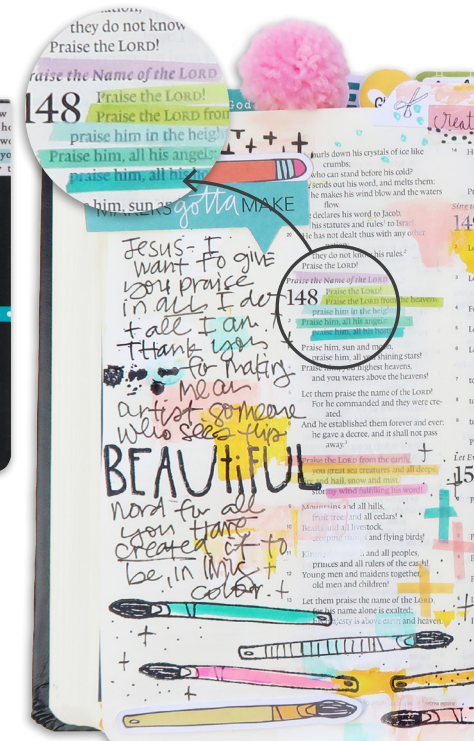 they do not know
Praise the LORD!
raise the Name of the LORD
148 Praise the LORD!
Praise the LORD from
praise him in the heigh
Praise him, all his angels
praise him, all his
him, sun
God
MAKERS gotta MAKE
creat
Jesus- I
want to give
you praise
in all I do
+ all I am.
Thank you
for making
me an
artist someone
who sees this
BEAUTIFUL
word for all
you have
created it to
be, in this
colour.
hurls down his crystals of ice like
crumbs;
who can stand before his cold?
sends out his word, and melts them;
he makes his wind blow and the waters
flow.
declares his word to Jacob,
his statutes and rules to Israel.
He has not dealt thus with any other
his rules.
Praise the LORD!
Praise the Name of the LORD
148 Praise the LORD!
Praise the LORD from the heavens;
praise him in the heigh
Praise him, all his angels;
praise him, all his
Praise him, sun and moon,
praise him, all you shining stars!
Praise him, you highest heavens,
and you waters above the heavens!
Let them praise the name of the LORD!
For he commanded and they were cre-
ated.
And he established them forever and ever;
he gave a decree, and it shall not pass
away.
Praise the LORD from the earth,
you great sea creatures and all deeps,
and hail, snow and mist,
stormy wind fulfilling his word!
Mountains and all hills,
fruit trees and all cedars!
Beasts and all livestock,
creeping things and flying birds!
Kings and all peoples,
princes and all rulers of the earth!
Young men and maidens together,
old men and children!
Let them praise the name of the LORD,
for his name alone is exalted;
majesty is above earth and heaven.